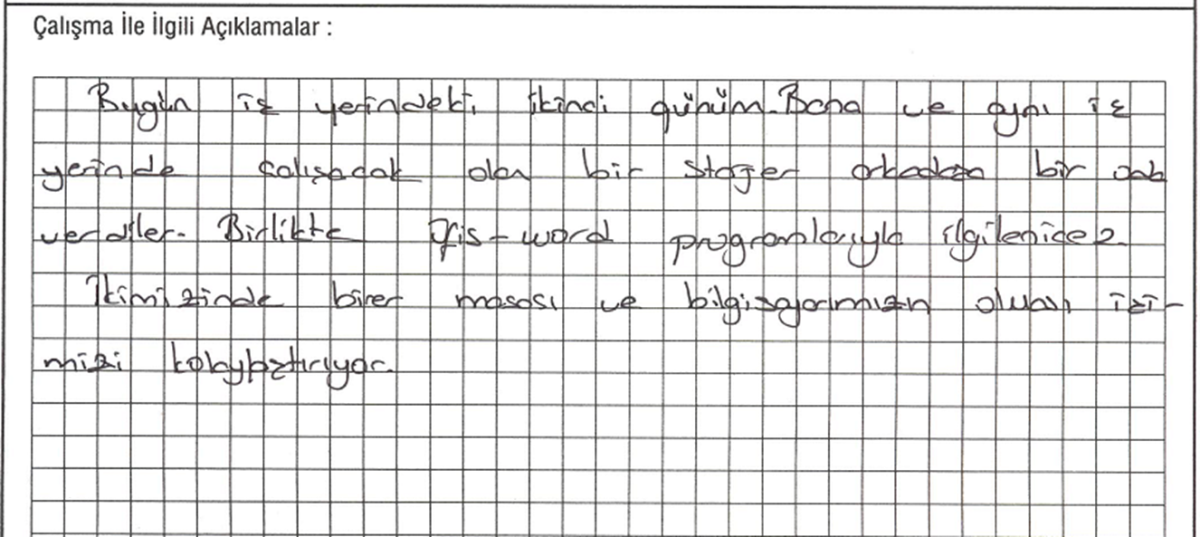 Çalışma İle İlgili Açıklamalar :
Bugün iş yerindeki ikinci günüm. Bana ve aynı iş
yerinde çalışacak olan bir stajer arkadaşa bir oda
verdiler. Birlikte ofis-word programlarıyla ilgilenicez.
İkimizinde birer masası ve bilgisayarımızın oluşu işi-
mizi kolaylaştırıyor.